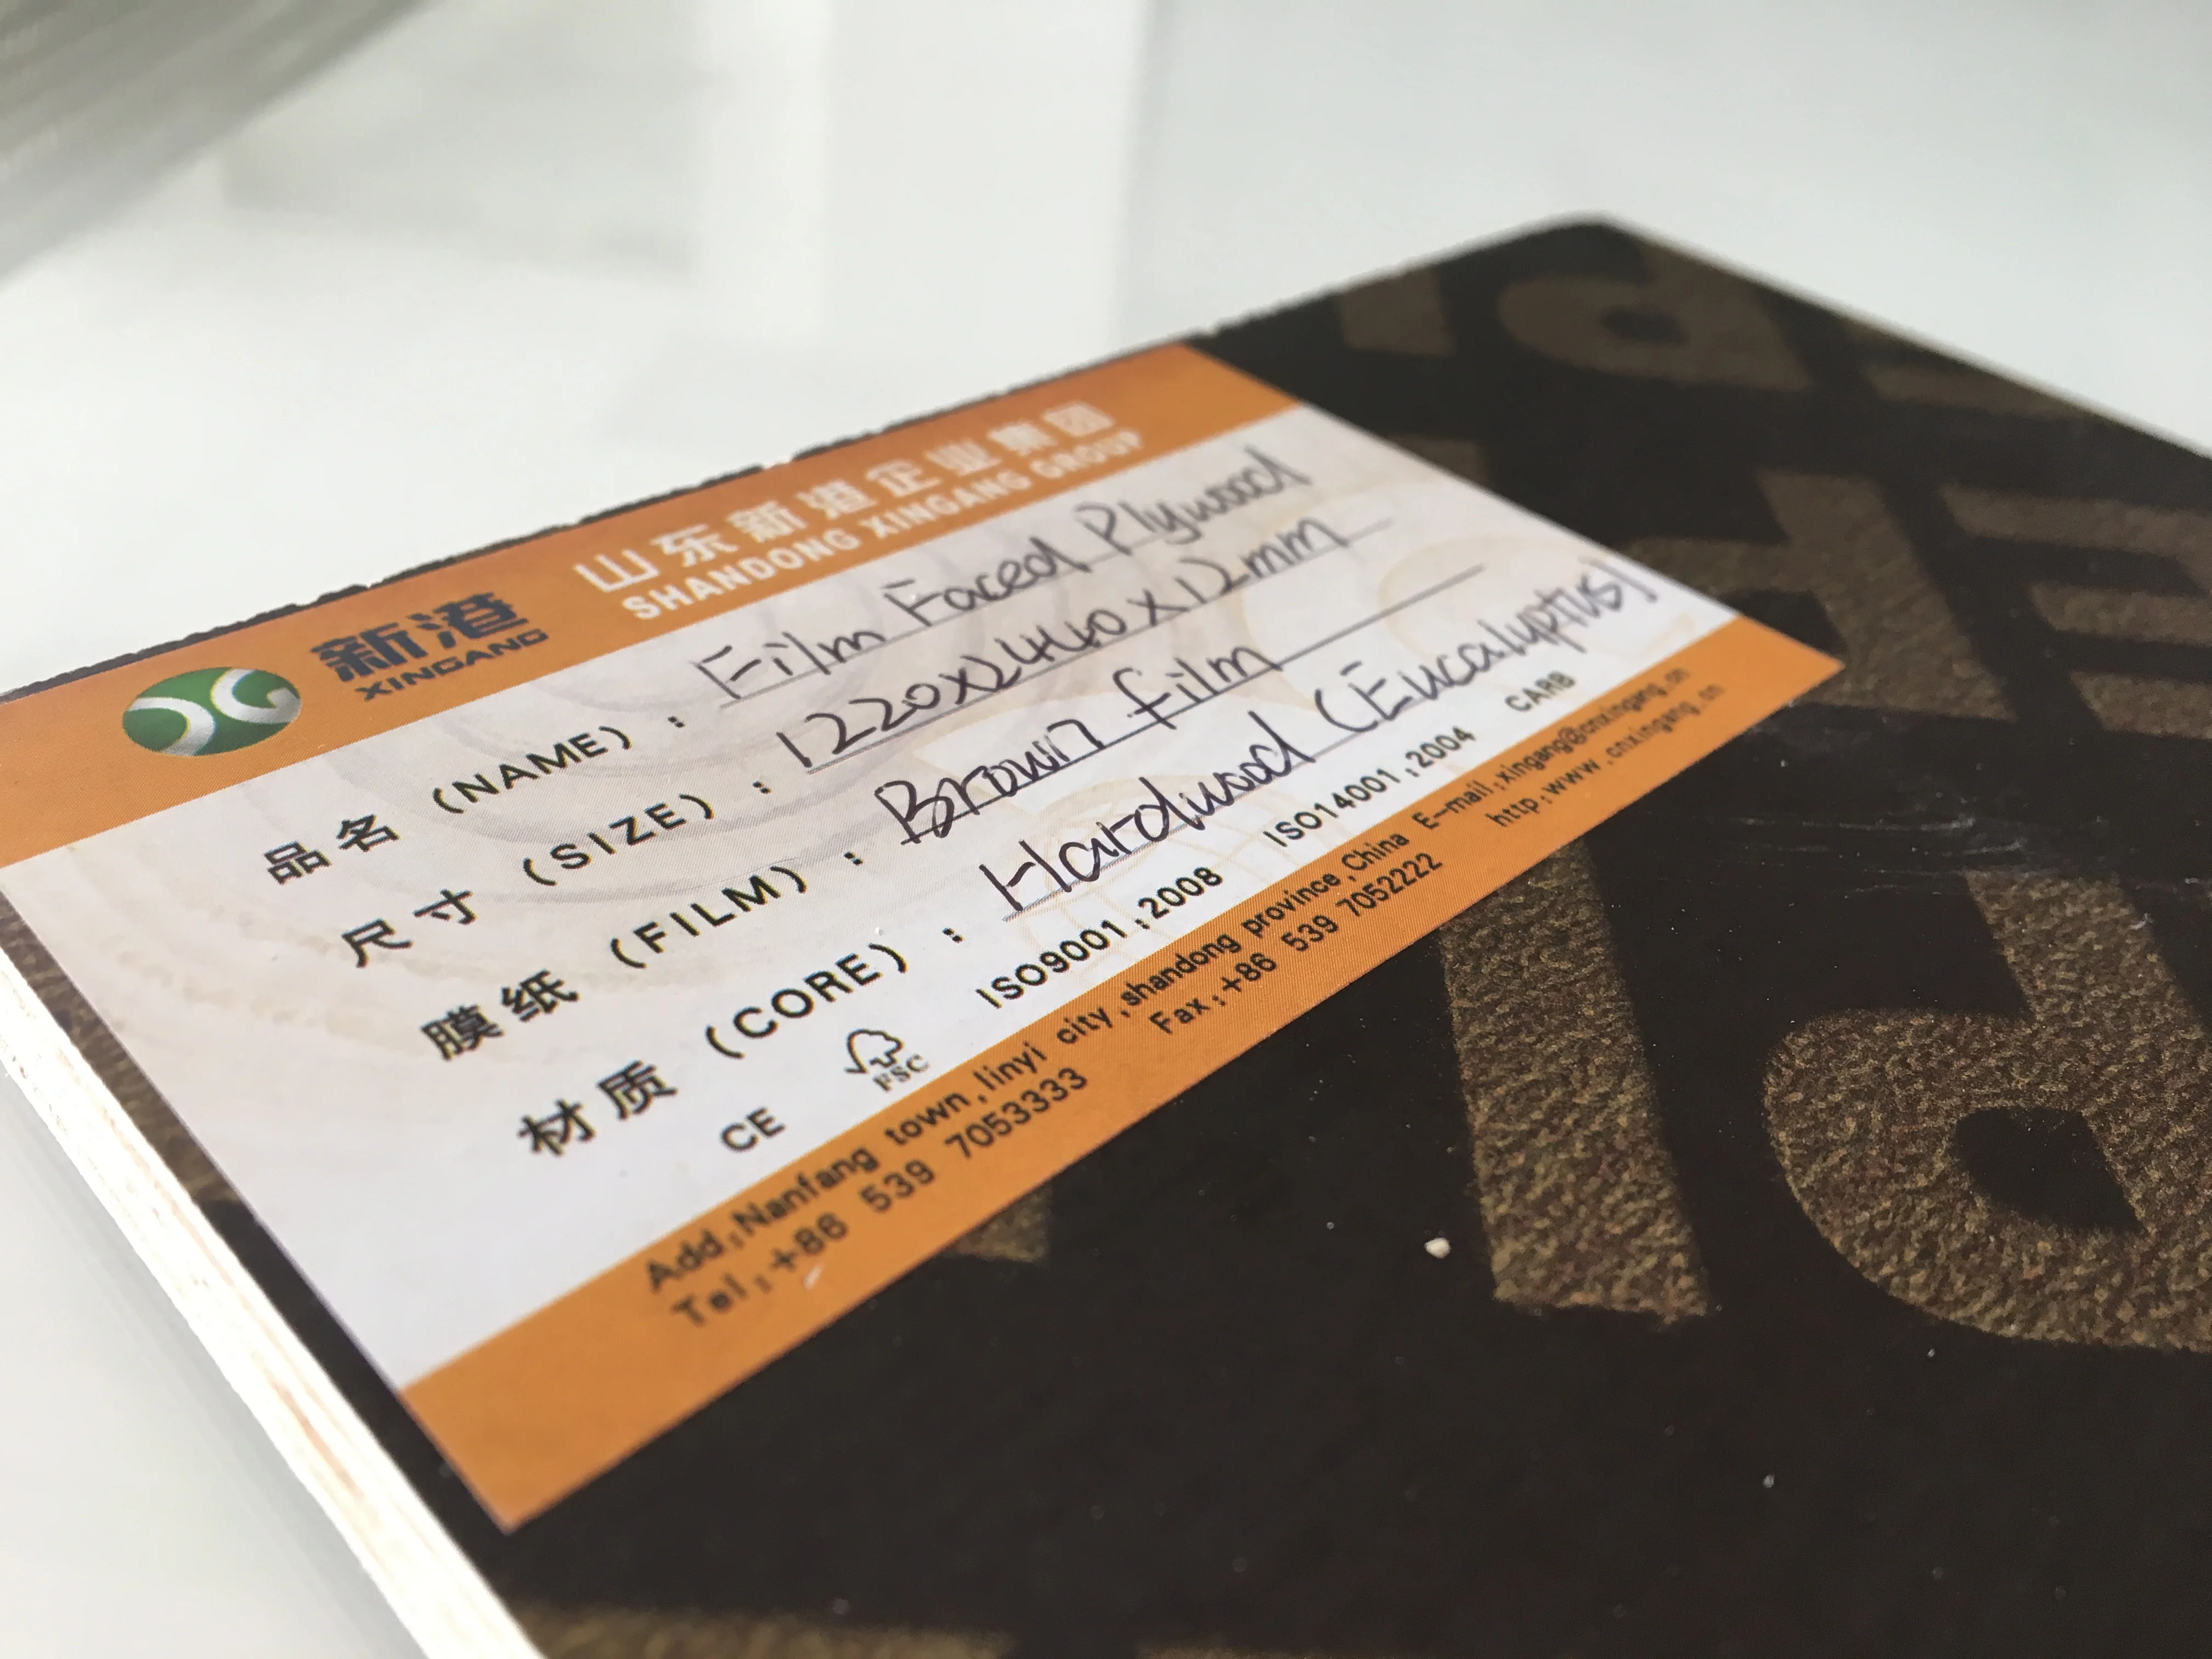 新港 山东新港企业集团
XINGANG SHANDONG XINGANG GROUP
品名 (NAME) : Film Faced Plywood
尺寸 (SIZE) : 1220x2440x12mm
膜纸 (FILM) : Brown film
材质 (CORE) : Hardwood (Eucalyptus)
CE FSC ISO9001:2008 ISO14001:2004 CARB
Add:Nanfang town,linyi city,shandong province,China E-mail:xingang@cnxingang.cn
Tel:+86 539 7053333 Fax:+86 539 7052222 http:www.cnxingang.cn